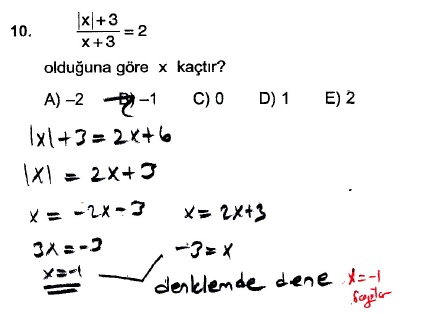 10. |x|+3 / x+3 = 2
olduğuna göre x kaçtır?
A) –2 B) –1 C) 0 D) 1 E) 2
|x|+3=2x+6
|x| = 2x+3
x = -2x-3 x = 2x+3
3x=-3 -3=x
x=-1
denklemde dene x=-1